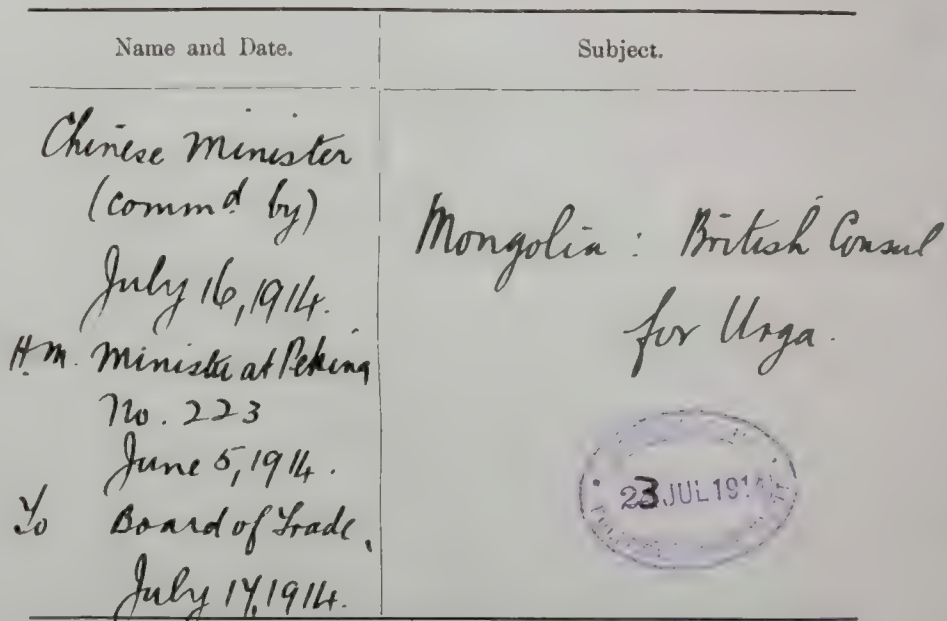 Name and Date.
Subject.
Chinese Minister
(comm.d by)
July 16, 1914.
H.M. Minister at Peking
No. 223
June 5, 1914.
To Board of Trade,
July 17, 1914.
Mongolia : British Consul
for Urga.
23 JUL 191